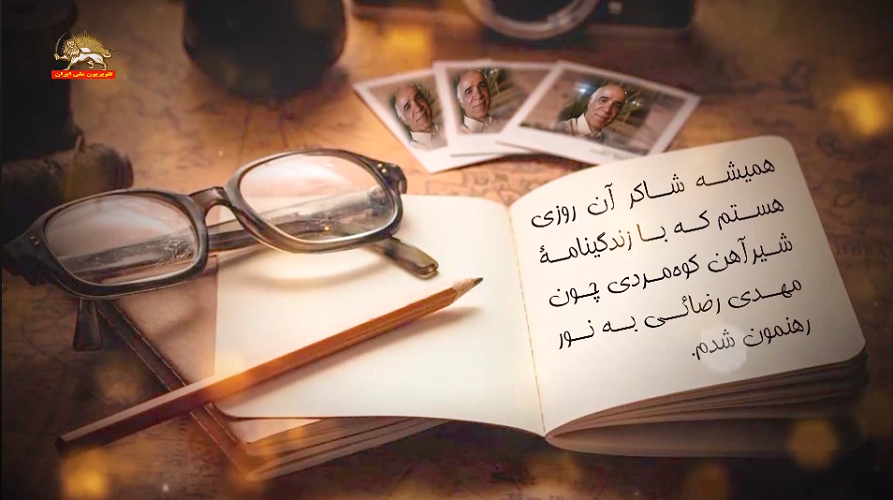 تلویزیون ملی ایران
همیشه شاکر آن روزی
هستم که با زندگینامهٔ
شیرآهن کوه‌مردی چون
مهدی رضائی به نور
رهنمون شدم.